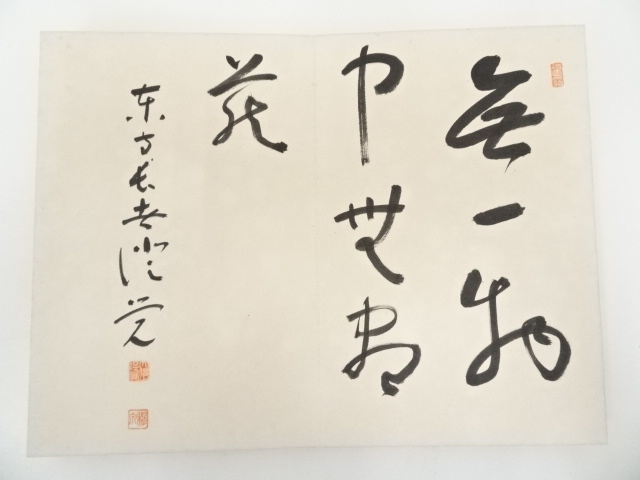 無一物
中無尽
蔵
東寺長者澄覚